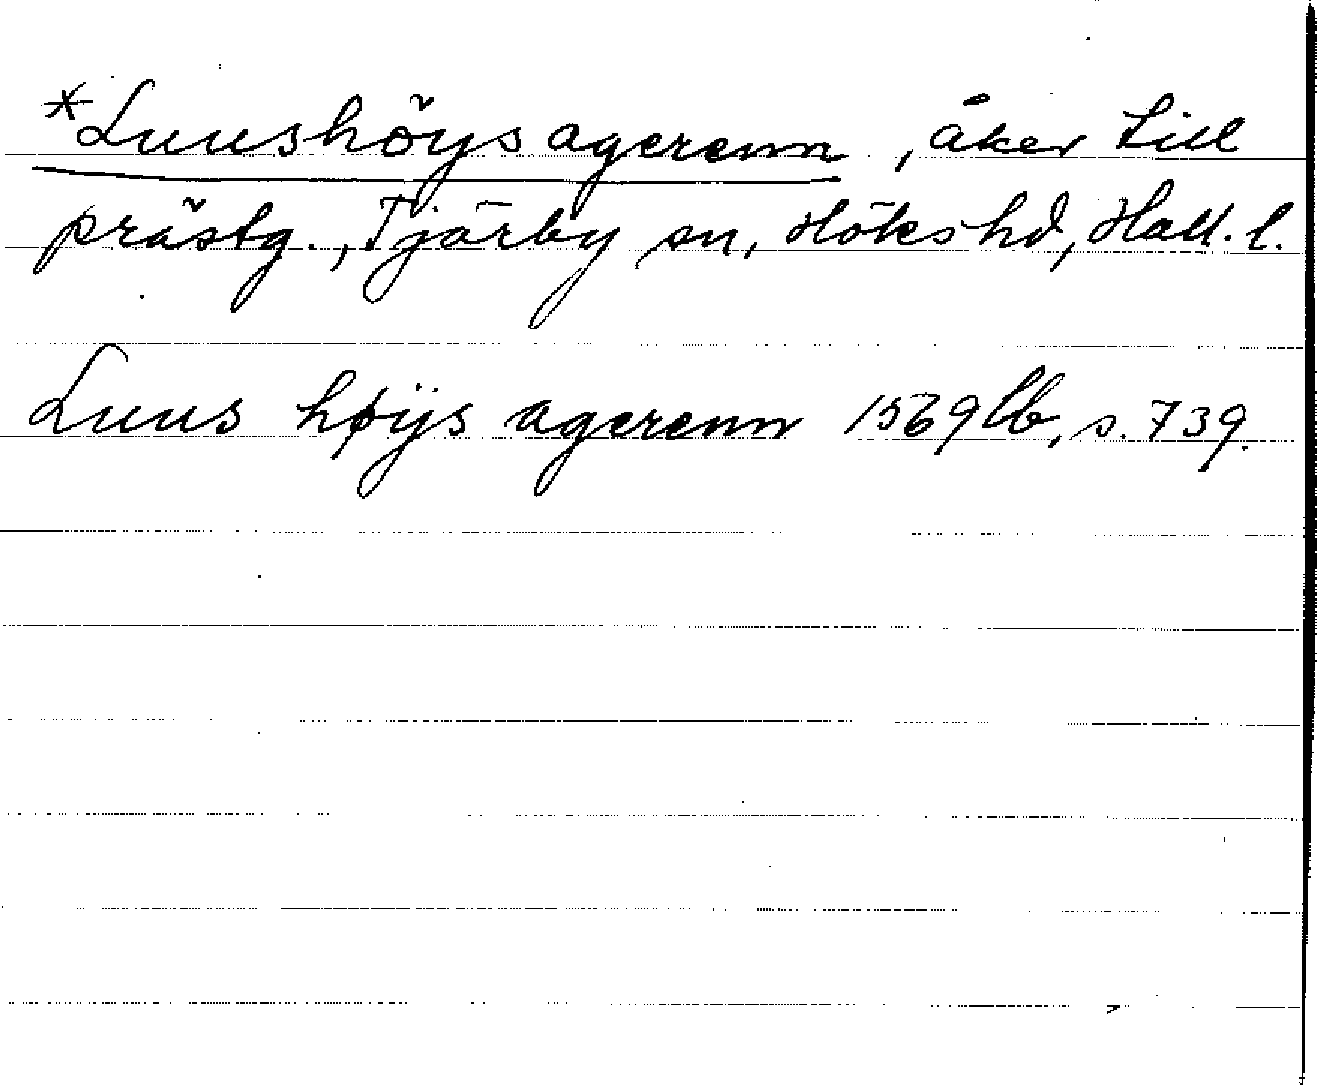 *Luushöys agerenn, åker till
prästg., Tjärby sn, Höks hd, Hall. l.
Luus høÿs agerenn 1569 lb, s. 739.